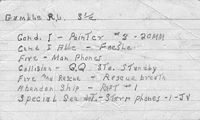 Gamble R.L. S1/c
Cond. I - Pointer #8 - 20MM
Cond I Able - Foc'sle
Fire - Man Phones
Collision - QQ Sta. Standby
Fire and Rescue - Rescue breath
Abandon Ship - RAFT #1
Special Sea det. - Stern phones - 1-JV